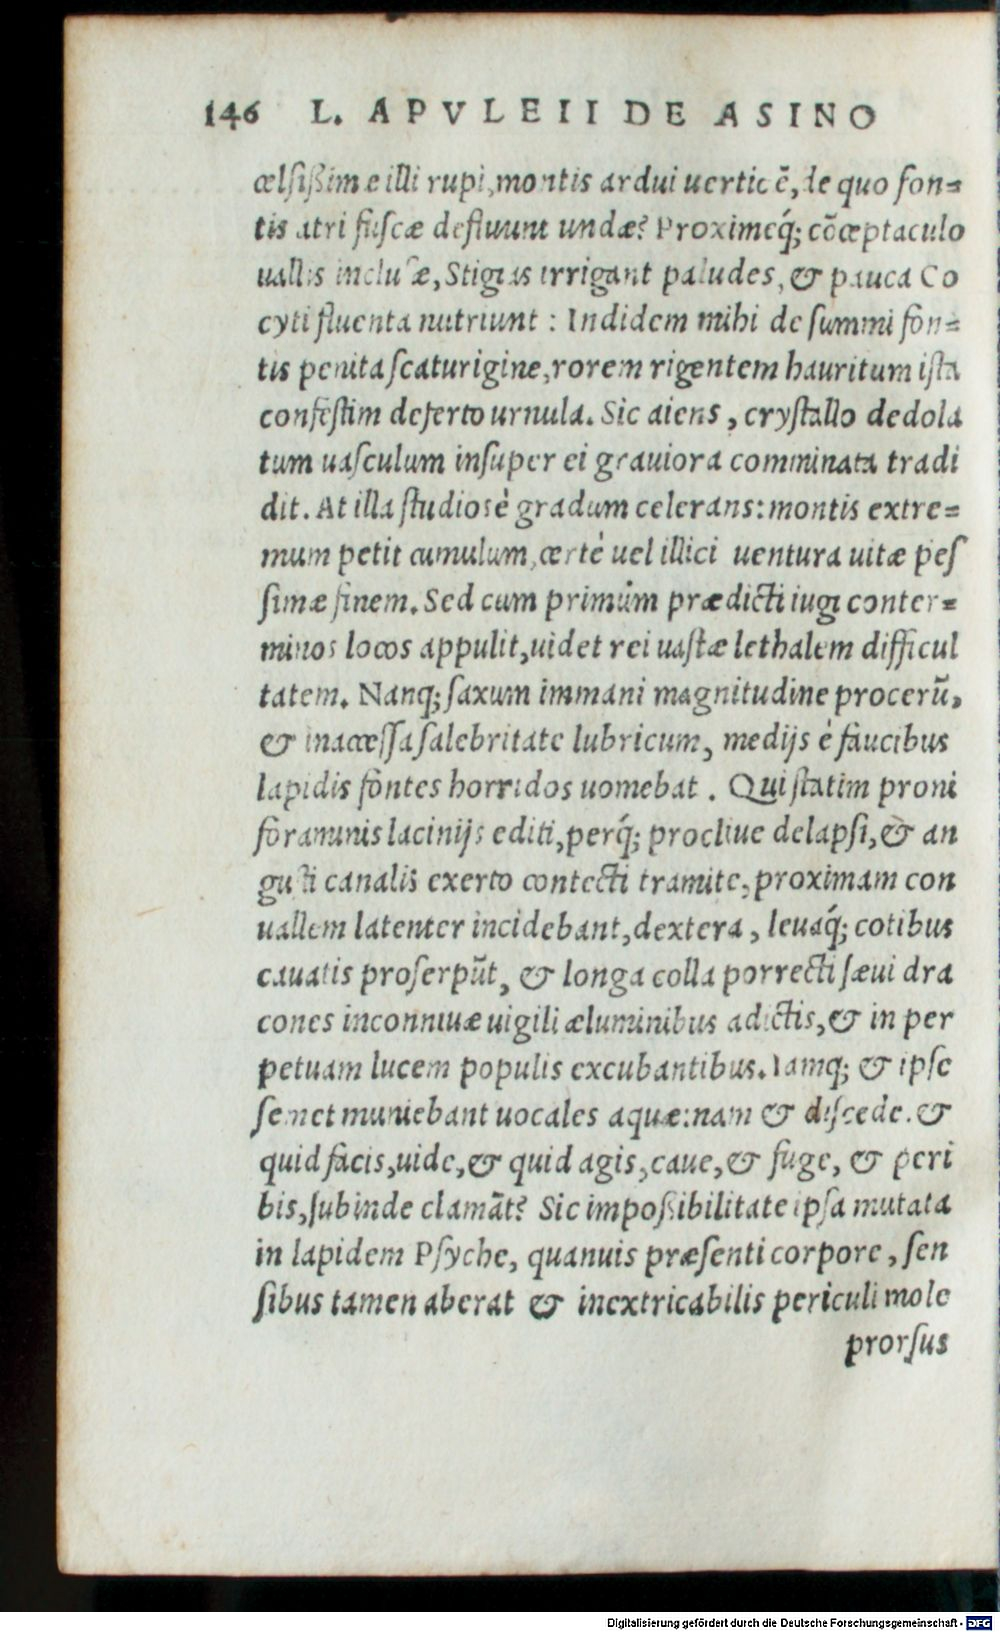 146 L. APVLEII DE ASINO
celsißimæ illi rupi, montis ardui uerticē, de quo fon=
tis atri fuscæ defluunt undæ? Proximeq́; cōceptaculo
uallis inclusæ, Stigias irrigant paludes, & pauca Co
cyti fluenta nutriunt : Indidem mihi de summi fon=
tis penita scaturigine, rorem rigentem hauritum ista
confestim deferto urnula. Sic aiens, crystallo dedola
tum uasculum insuper ei grauiora comminata tradi
dit. At illa studiosè gradum celerans: montis extre=
mum petit cumulum, certè uel illici uentura uitæ pes
simæ finem. Sed cum primùm prædicti iugi conter=
minos locos appulit, uidet rei uastæ lethalem difficul
tatem. Nanq; saxum immani magnitudine procerū,
& inaccessa salebritate lubricum, medijs è faucibus
lapidis fontes horridos uomebat. Qui statim proni
foraminis lacinijs editi, perq́; procliue delapsi, & an
gusti canalis exerto contecti tramite, proximam con
uallem latenter incidebant, dextera, leuaq́; cotibus
cauatis proserpūt, & longa colla porrecti sæui dra
cones inconniuæ uigiliæ luminibus adictis, & in per
petuam lucem populis excubantibus. Iamq; & ipse
semet muniebant uocales aquæ: nam & discede. &
quid facis, uide, & quid agis, caue, & fuge, & peri
bis, subinde clamāt? Sic impoßibilitate ipsa mutata
in lapidem Psyche, quanuis præsenti corpore, sen
sibus tamen aberat & inextricabilis periculi mole
prorsus
Digitalisierung gefördert durch die Deutsche Forschungsgemeinschaft - DFG